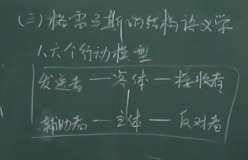 (三)格雷马斯的结构语义学
1.六个行动模型
发送者—客体—接收者
辅助者—主体—反对者